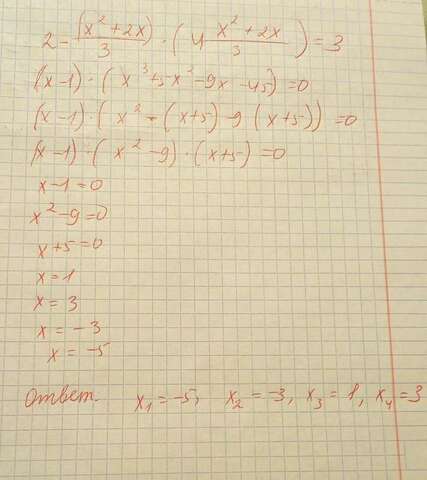 2 - (x² + 2x)/3 · (4 x² + 2x/3) = 3
(x-1) · (x³+5x²-9x-45) = 0
(x-1) · (x² - (x+5) - 9 (x+5)) = 0
(x-1) · (x² - 9) · (x+5) = 0
x-1 = 0
x² - 9 = 0
x+5 = 0
x = 1
x = 3
x = -3
x = -5
Ответ. x₁ = -5, x₂ = -3, x₃ = 1, x₄ = 3